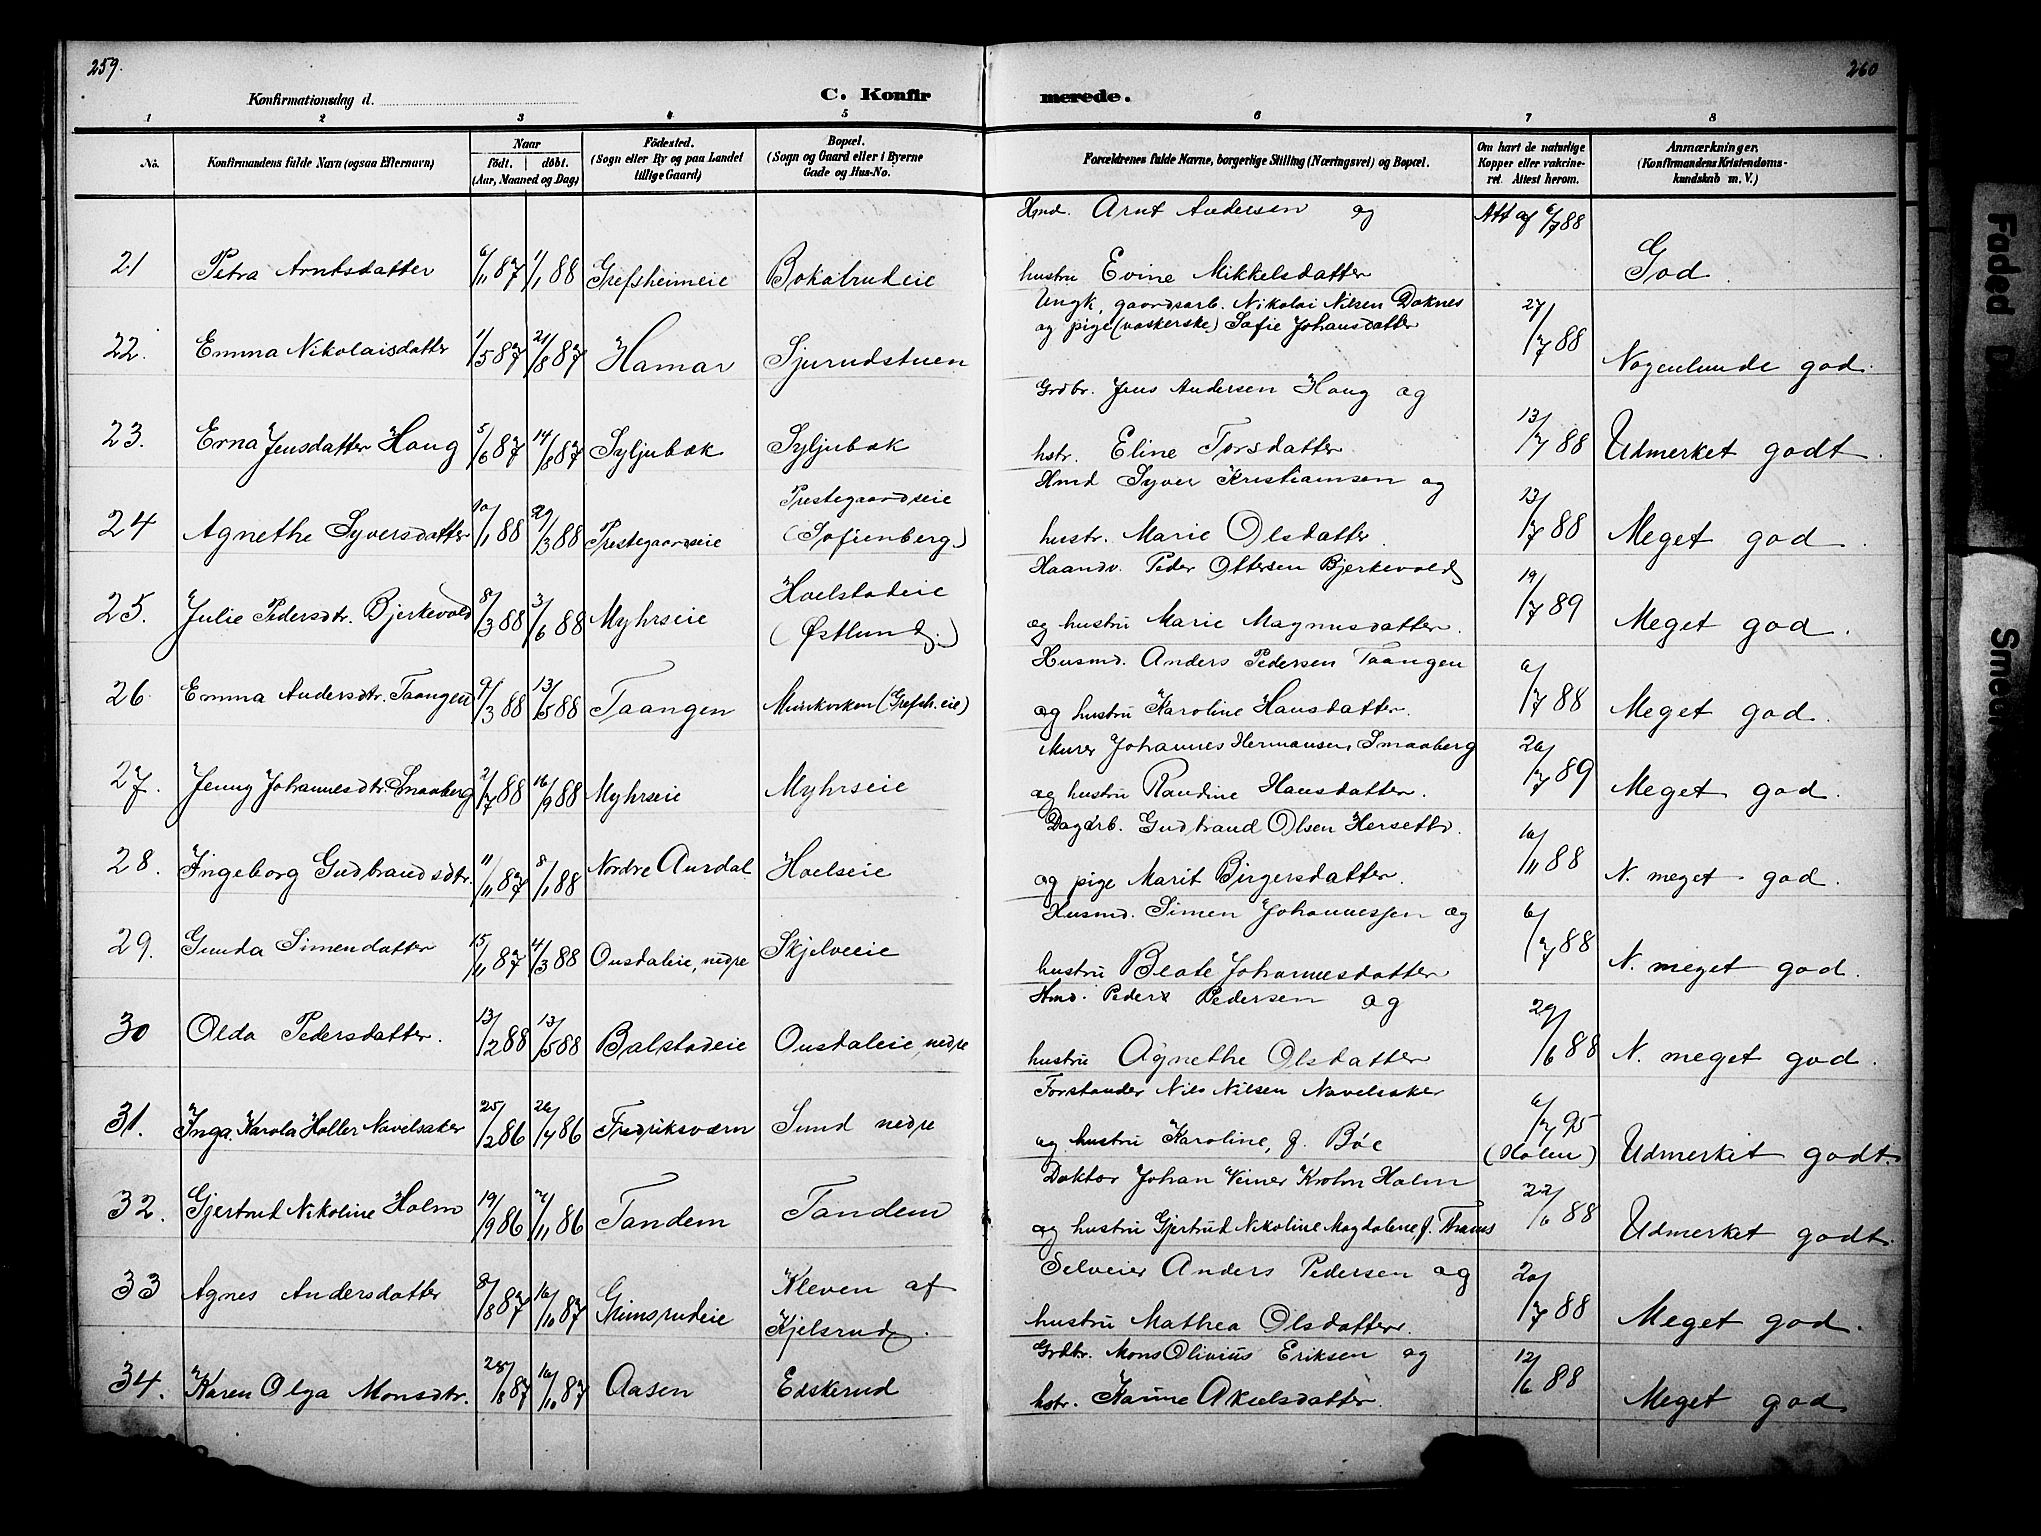 259.
260
Konfirmationsdag d.
C. Konfirmerede.
1 2 3 4 5 6 7 8
No. Konfirmandens fulde Navn (ogsaa Efternavn) Naar födt. döbt. (Aar, Maaned og Dag) Födested. (Sogn eller By og paa Landet tillige Gaard) Bopæl. (Sogn og Gaard eller i Byerne Gade og Hus-No.) Forældrenes fulde Navne, borgerlige Stilling (Næringsvei) og Bopæl. Om havt de naturlige Kopper eller vakcineret. Attest herom. Anmærkninger. (Konfirmandens Kristendomskundskab m. V.)
Hmd. Arnt Andersen og Att af 6/7 88
21 Petra Arntsdatter 6/11 87 1/1 88 Grefsheimeie Bokalrudeie hustru Evine Mikkelsdatter God
Ungk, gaardsarb. Nikolai Nilsen Doknes
og pige (vaskerske) Sofie Johansdatter
22. Emma Nikolaisdatter 1/5 87 21/8 87 Hamar Sjurudstuen 27/7 88 Nogenlunde god.
Grdbr. Jens Andersen Haug og
23. Erna Jensdatter Haug 5/6 87 14/8 87 Syljubæk Syljubæk hstr. Eline Torsdatter 13/7 88 Udmerket godt.
Hmd Syver Kristiansen og
24 Agnethe Syversdatter 10/1 88 29/3 88 Prestegaardseie Prestegaardseie (Sofienberg.) hustr. Marie Olsdatter. 13/7 88 Meget god.
Haandv. Peder Ottersen Bjerkevold
25. Julie Pedersdtr. Bjerkevold 8/3 88 3/6 88 Myhrseie Hoelstadeie (Østlund.) og hustru Marie Magnusdatter. 19/7 89 Meget god.
Husmd. Anders Pedersen Taangen
26 Emma Andersdtr. Taangen 9/3 88 13/5 88 Taangen (Grefsh. eie) og hustru Karoline Hansdatter. 6/7 88 Meget god.
Murer Johannes Hermansen Smaaberg
27. Jenny Johannesdtr. Smaaberg 2/7 88 16/9 88 Myhrseie Myhrseie og hustru Randine Hansdatter. 26/7 89 Meget god.
Dagarb. Gudbrand Olsen
28. Ingeborg Gudbrandsdtr. 11/11 87 8/1 88 Nordre Aurdal Hoelseie og pige Marit Birgersdatter. 16/11 88 N. meget god.
Husmd. Simen Johannessen og
29. Gunda Simendatter 15/11 87 4/3 88 Ousdaleie, nedre Skjelveeie hustru Beate Johannesdatter 6/7 88 N. meget god.
Hmd. Peder Pedersen og
30 Olda Pedersdatter. 13/2 88 13/5 88 Balstadeie Ousdaleie, nedre hustru Agnethe Olsdatter 29/6 88 N. meget god.
Forstander Nils Nilsen Navelsaker
31. Inga Karola Holler Navelsaker 25/2 86 26/7 86 Fredriksværn Sund nedre og hustru Karoline, f. Böe 6/7 95 (Holen) Udmerket godt.
Doktor Johan Krohn Holm
32. Gjertrud Nikoline Holm 19/9 86 7/11 86 Tandem Tandem og hustru Gjertrud Nikoline Magdalene, f. 22/6 88 Udmerket godt.
Selveier Anders Pedersen og
33 Agnes Andersdatter 8/8 87 16/10 87 Grimsrudeie Kleven af Kjelsrud. hustru Mathea Olsdatter. 20/7 88 Meget god.
Grdbr. Mons Olivius Eriksen og
34. Karen Olga Monsdtr. 28/8 87 16/10 87 Aasen Edskerud hstr. Akselsdatter. 12/6 88 Meget god
Faded